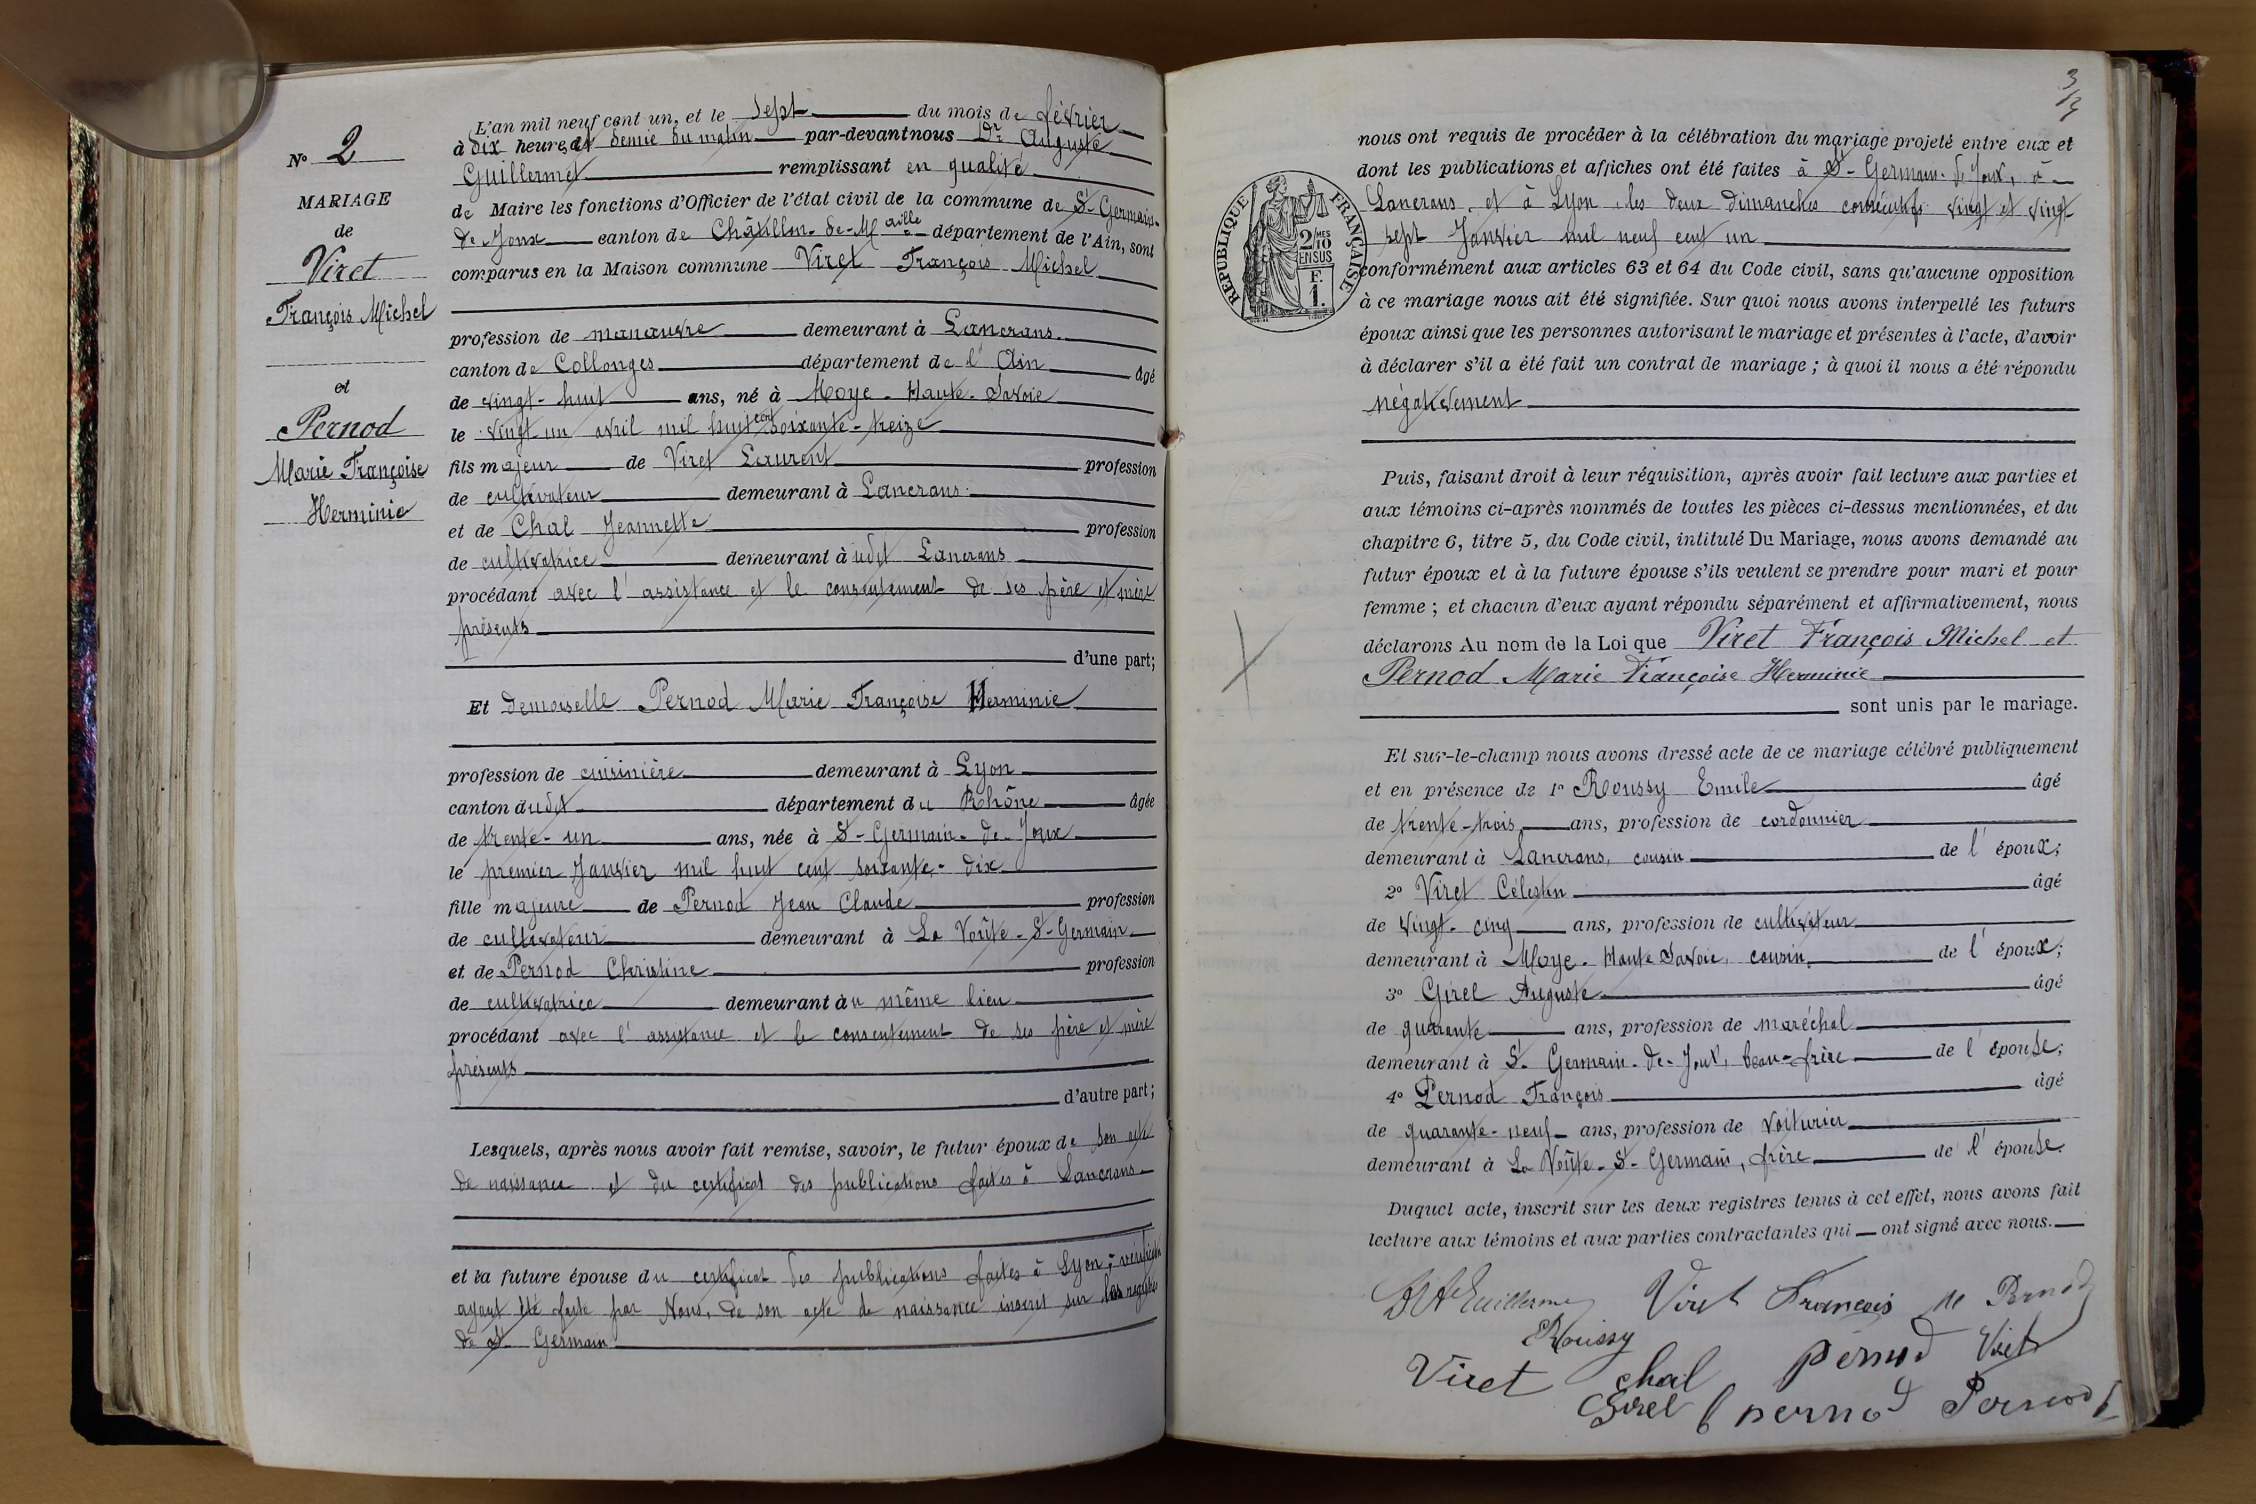 N° 2
MARIAGE
de
Viret
François Michel
et
Pernod
Marie Françoise
Herminie
L'an mil neuf cent un, et le sept du mois de février
à dix heures et demie du matin par-devant nous Dr Auguste
Guillermet remplissant en qualité
de Maire les fonctions d'Officier de l'état civil de la commune de St-Germain-
de-Joux canton de Châtillon-de-Maille département de l'Ain, sont
comparus en la Maison commune Viret François Michel
profession de manœuvre demeurant à Lancrans.
canton de Collonges département de l'Ain âgé
de vingt-huit ans, né à Moye-Haute-Savoie
le vingt-un avril mil huit cent soixante-treize
fils majeur de Viret Laurent profession
de cultivateur demeurant à Lancrans.
et de Chal Jeannette profession
de cultivatrice demeurant à udit Lancrans
procédant avec l'assistance et le consentement de ses père et mère
présents
d'une part;
Et demoiselle Pernod Marie Françoise Herminie
profession de cuisinière demeurant à Lyon
canton dudit département du Rhône âgée
de trente-un ans, née à St-Germain-de-Joux
le premier Janvier mil huit cent soixante-dix
fille majeure de Pernod Jean Claude profession
de cultivateur demeurant à La Voûte-St-Germain
et de Pernod Christine profession
de cultivatrice demeurant àu même lieu
procédant avec l'assistance et le consentement de ses père et mère
présents
d'autre part;
Lesquels, après nous avoir fait remise, savoir, le futur époux de son acte
de naissance et du certificat des publications faites à Lancrans
et la future épouse du certificat des publications faites à Lyon; vérification
ayant été faite par Nous, de son acte de naissance inscrit sur les registres
de St Germain
3/3
RÉPUBLIQUE FRANÇAISE
2/10 MES
EN SUS
F.
1.
nous ont requis de procéder à la célébration du mariage projeté entre eux et
dont les publications et affiches ont été faites à St-Germain-de-Joux, à
Lancrans, et à Lyon, les deux dimanches consécutifs vingt et vingt-
sept Janvier mil neuf cent un
conformément aux articles 63 et 64 du Code civil, sans qu'aucune opposition
à ce mariage nous ait été signifiée. Sur quoi nous avons interpellé les futurs
époux ainsi que les personnes autorisant le mariage et présentes à l'acte, d'avoir
à déclarer s'il a été fait un contrat de mariage; à quoi il nous a été répondu
négativement
Puis, faisant droit à leur réquisition, après avoir fait lecture aux parties et
aux témoins ci-après nommés de toutes les pièces ci-dessus mentionnées, et du
chapitre 6, titre 5, du Code civil, intitulé Du Mariage, nous avons demandé au
futur époux et à la future épouse s'ils veulent se prendre pour mari et pour
femme; et chacun d'eux ayant répondu séparément et affirmativement, nous
déclarons Au nom de la Loi que Viret François Michel et
Pernod Marie Françoise Herminie
sont unis par le mariage.
Et sur-le-champ nous avons dressé acte de ce mariage célébré publiquement
et en présence de 1° Roussy Emile âgé
de trente-trois ans, profession de cordonnier
demeurant à Lancrans, cousin de l'époux;
2° Viret Célestin âgé
de vingt-cinq ans, profession de cultivateur
demeurant à Moye-Haute Savoie, cousin de l'époux;
3° Girel Auguste âgé
de quarante ans, profession de maréchal
demeurant à St Germain-de-Joux, beau-frère de l'épouse;
4° Pernod François âgé
de quarante-neuf ans, profession de voiturier
demeurant à La Voûte-St-Germain, frère de l'épouse.
Duquel acte, inscrit sur les deux registres tenus à cet effet, nous avons fait
lecture aux témoins et aux parties contractantes qui ont signé avec nous.
Dr Ate Guillermet Viret François M Pernod
ERoussy
Viret Chal Pernod Viret
Girel pernod Pernod f